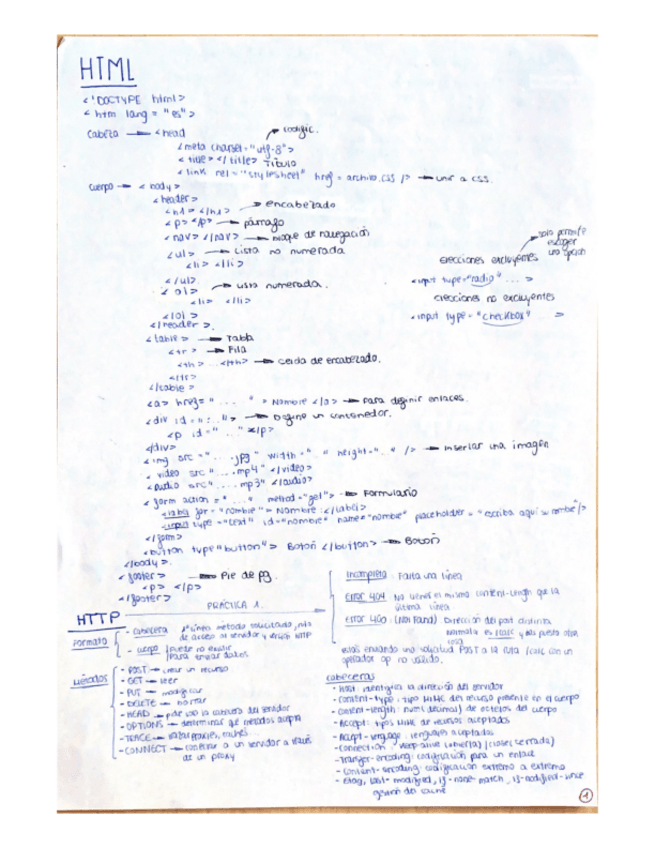 HTML
<!DOCTYPE html>
<htm lang = "es">
cabeza → <head
→ codific.
<meta charset="utf-8">
<title></title> Título
<link rel="stylesheet" href = archivo.css /> → unir a css.
cuerpo → <body>
<header>
<h1></h1> → encabezado
<p></p> → párrafo
<nav></nav> → bloque de navegación
<ul> → Lista no numerada
<li> </li>
</ul>
<ol> → lista numerada.
<li> </li>
</ol>
</header>.
→ solo permite
escoger
una opción
elecciones excluyentes
<input type="radio" ... >
elecciones no excluyentes
<input type="checkbox" >
<table> → Tabla
<tr> → Fila
<th> ...</th> → celda de encabezado.
</tr>
</table>
<a> href= " .... " > Nombre </a> → para definir enlaces.
<div id = "...."> → Define un contenedor.
<p id=" ..." ></p>
</div>
<img src = " .....jpg" width = ".." height=".." /> → insertar una imagen
<video src "....mp4" </video>
<audio src"....mp3" </audio>
<form action = " ...." method="get"> → Formulario
<label for= "nombre"> Nombre :</label>
<input type ="text" id="nombre" name="nombre" placeholder = "escriba aquí su nombre"/>
</form>
<button type"button"> Botón </button> → Botón
</body>.
<footer> → Pie de pg.
<p> </p>
</footer>
PRÁCTICA 1.
Incompleta : Falta una línea
Error 404 No tienes el mismo content-length que la
última línea
Error 400 : (Not Found) Dirección del port distinta
Normal es /calc y has puesto otra
cosa
estás enviando una solicitud POST a la ruta /calc con un
operador op no válido.
HTTP
Formato
- cabecera 1ª línea método solicitado, ruta
de acceso al servidor y versión HTTP
- cuerpo (puede no existir
Para enviar datos
Métodos
- POST → crear un recurso
- GET → leer
- PUT → modificar
- DELETE → borrar
- HEAD → pide solo la cabecera del servidor
- OPTIONS → determinar qué métodos acepta
- TRACE →
- CONNECT → conectar a un servidor a través
de un proxy
cabeceras
- Host: identifica la dirección del servidor
- content-type : tipo MIME del recurso presente en el cuerpo
- Content-length: num (decimal) de octetos del cuerpo
- Accept: tipos MIME de recursos aceptados
- Accept-lenguage : lenguajes aceptados
- connection : keep-alive (abierta) / close (cerrada)
- Transfer-encoding: codificación para un enlace
- Content-encoding: codificación extremo a extremo
- Etag, last-modified, if-none-match, if-modified-since
gestión de caché
1